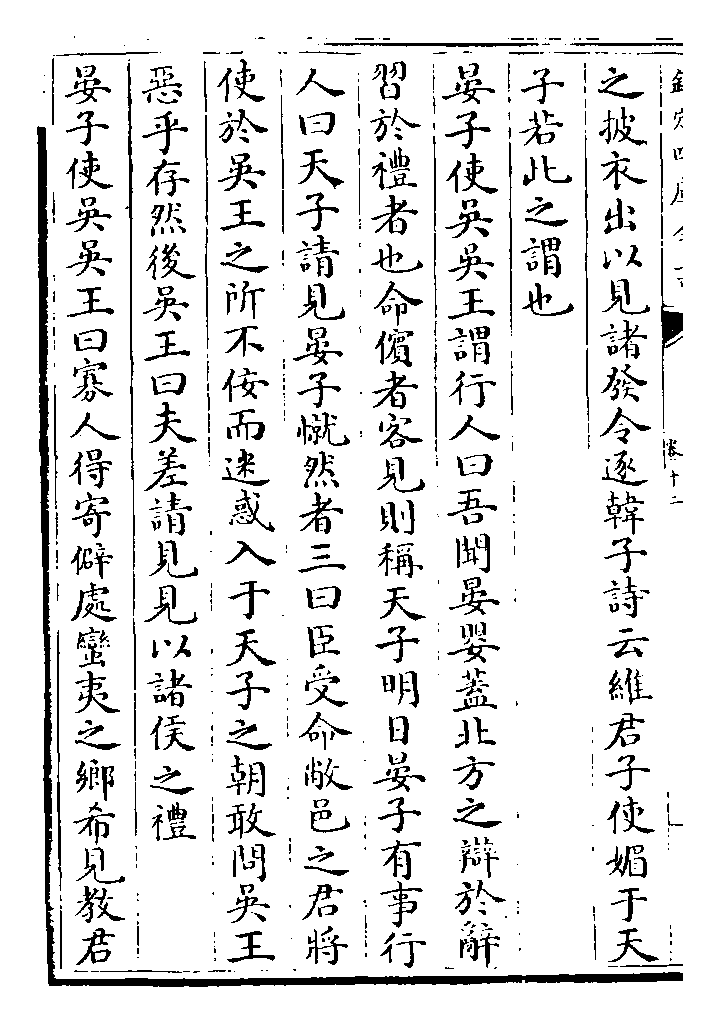 卷十二
之披衣出以見諸發令逐韓子詩云維君子使媚于天
子若此之謂也
晏子使吳吳王謂行人曰吾聞晏嬰蓋北方之辯於辭
習於禮者也命儐者客見則稱天子明日晏子有事行
人曰天子請見晏子憱然者三曰臣受命敝邑之君將
使於吳王之所不佞而迷惑入于天子之朝敢問吳王
惡乎存然後吳王曰夫差請見見以諸侯之禮
晏子使吳吳王曰寡人得寄僻處蠻夷之鄉希見教君